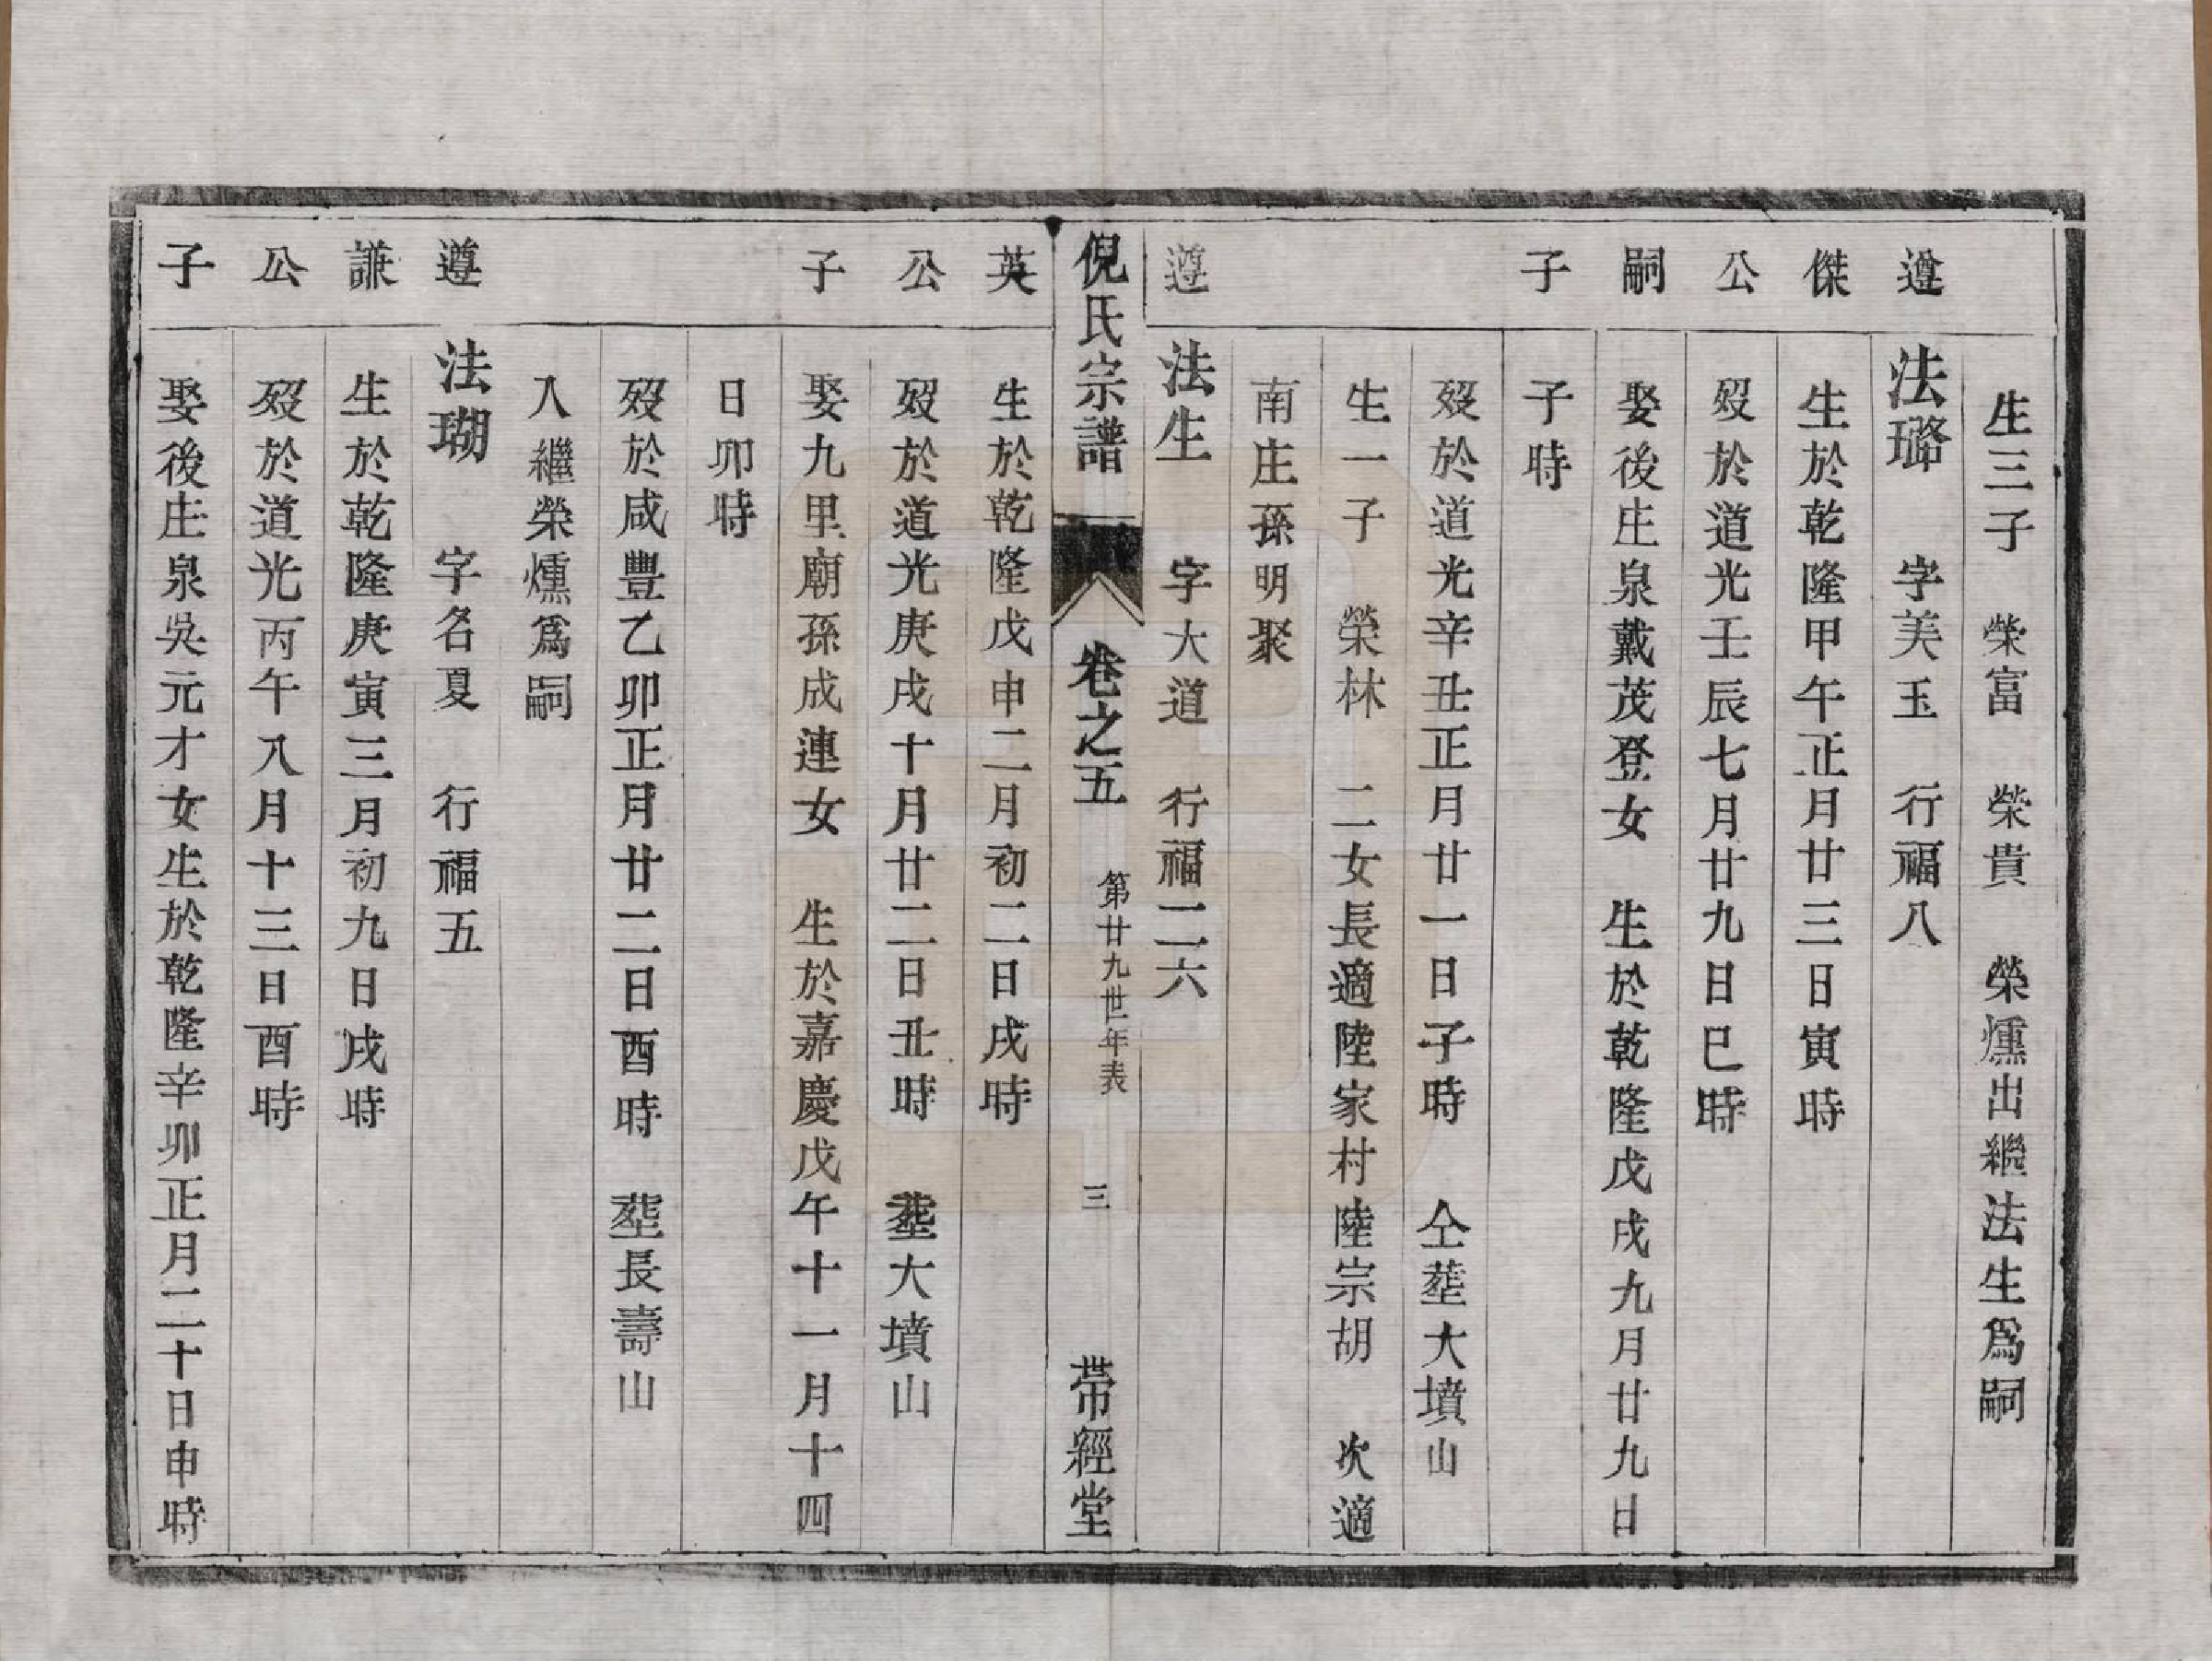 生三子　榮富　榮貴　榮燻出繼法生爲嗣
遵　法璐　字美玉　行福八
傑　生於乾隆甲午正月廿三日寅時
公　歿於道光壬辰七月廿九日巳時
嗣　娶後庄泉戴茂登女　生於乾隆戊戌九月廿九日
子　子時
歿於道光辛丑正月廿一日子時　仝塟大墳山
生一子　榮林　二女長適陸家村陸宗胡　次適
南庄孫明聚
遵　法生　字大道　行福二六
倪氏宗譜　卷之五　第廿九世年表　三　帶經堂
英　生於乾隆戊申二月初二日戌時
公　歿於道光庚戌十月廿二日丑時　塟大墳山
子　娶九里廟孫成連女　生於嘉慶戊午十一月十四
日卯時
歿於咸豐乙卯正月廿二日酉時　塟長壽山
入繼榮燻爲嗣
遵　法瑚　字名夏　行福五
謙　生於乾隆庚寅三月初九日戌時
公　歿於道光丙午八月十三日酉時
子　娶後庄泉吳元才女生於乾隆辛卯正月二十日申時